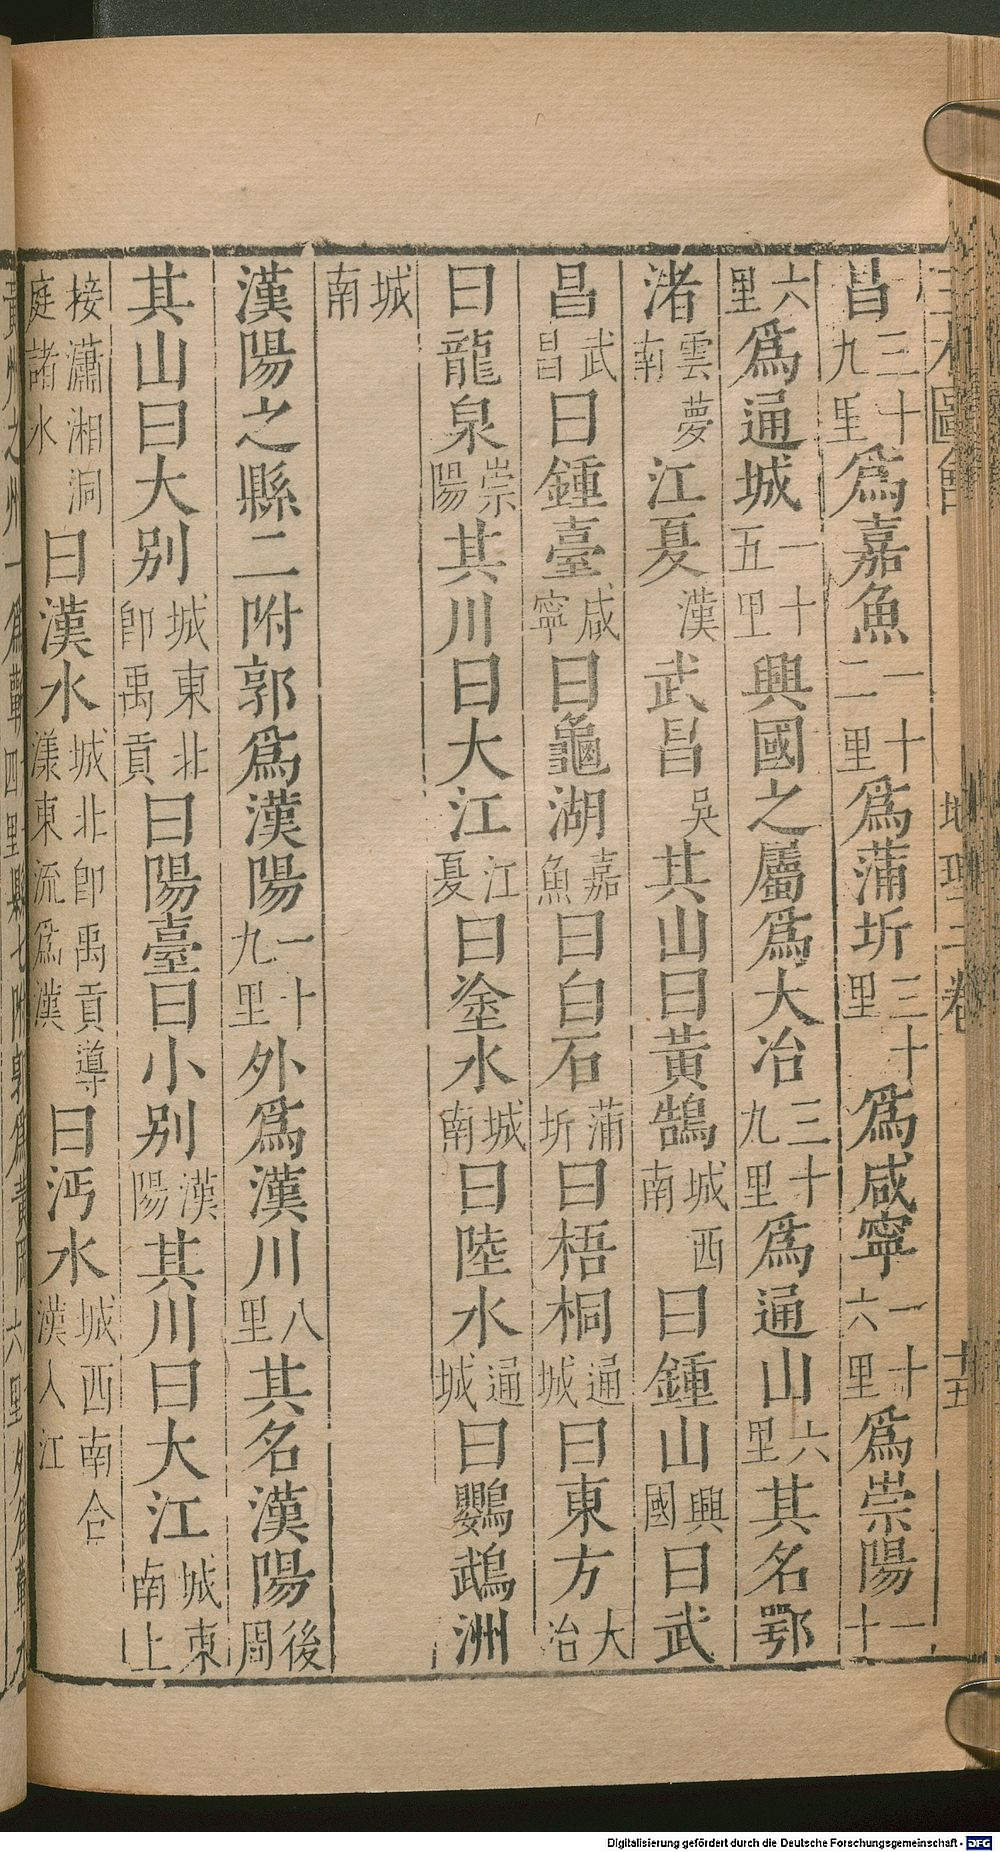 三才圖會 地理 卷 十五
昌三十九里爲嘉魚一十二里爲蒲圻三十里爲咸寧一十六里爲崇陽一十
六里爲通城一十五里興國之屬爲大冶三十九里爲通山六里其名鄂
渚雲夢南江夏漢武昌吳其山曰黃鵠城西南曰鍾山興國曰武
昌武昌曰鍾臺咸寧曰龜湖嘉魚曰白石蒲圻曰梧桐通城曰東方大冶
曰龍泉崇陽其川曰大江江夏曰塗水城南曰陸水通城曰鸚鵡洲
城南
漢陽之縣二附郭爲漢陽一十九里外爲漢川八里其名漢陽後周
其山曰大别城東北卽禹貢曰陽臺曰小别漢陽其川曰大江城東南上
接瀟湘洞庭諸水曰漢水城北卽禹貢導漾東流爲漢曰沔水城西南合漢入江
黃州之州一爲蘄四里縣七附郭爲黃岡六里外爲蘄水
Digitalisierung gefördert durch die Deutsche Forschungsgemeinschaft - DFG